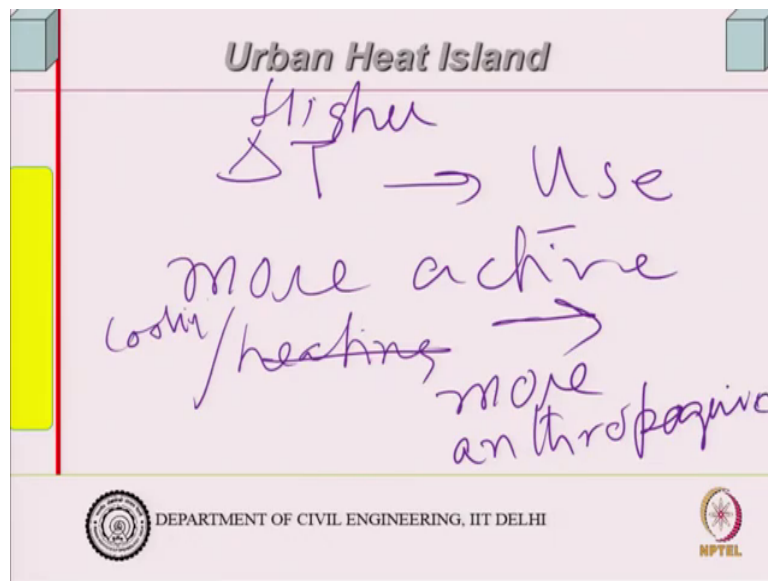 Urban Heat Island
Higher
ΔT → Use
more active
/heating →
more
DEPARTMENT OF CIVIL ENGINEERING, IIT DELHI
NPTEL